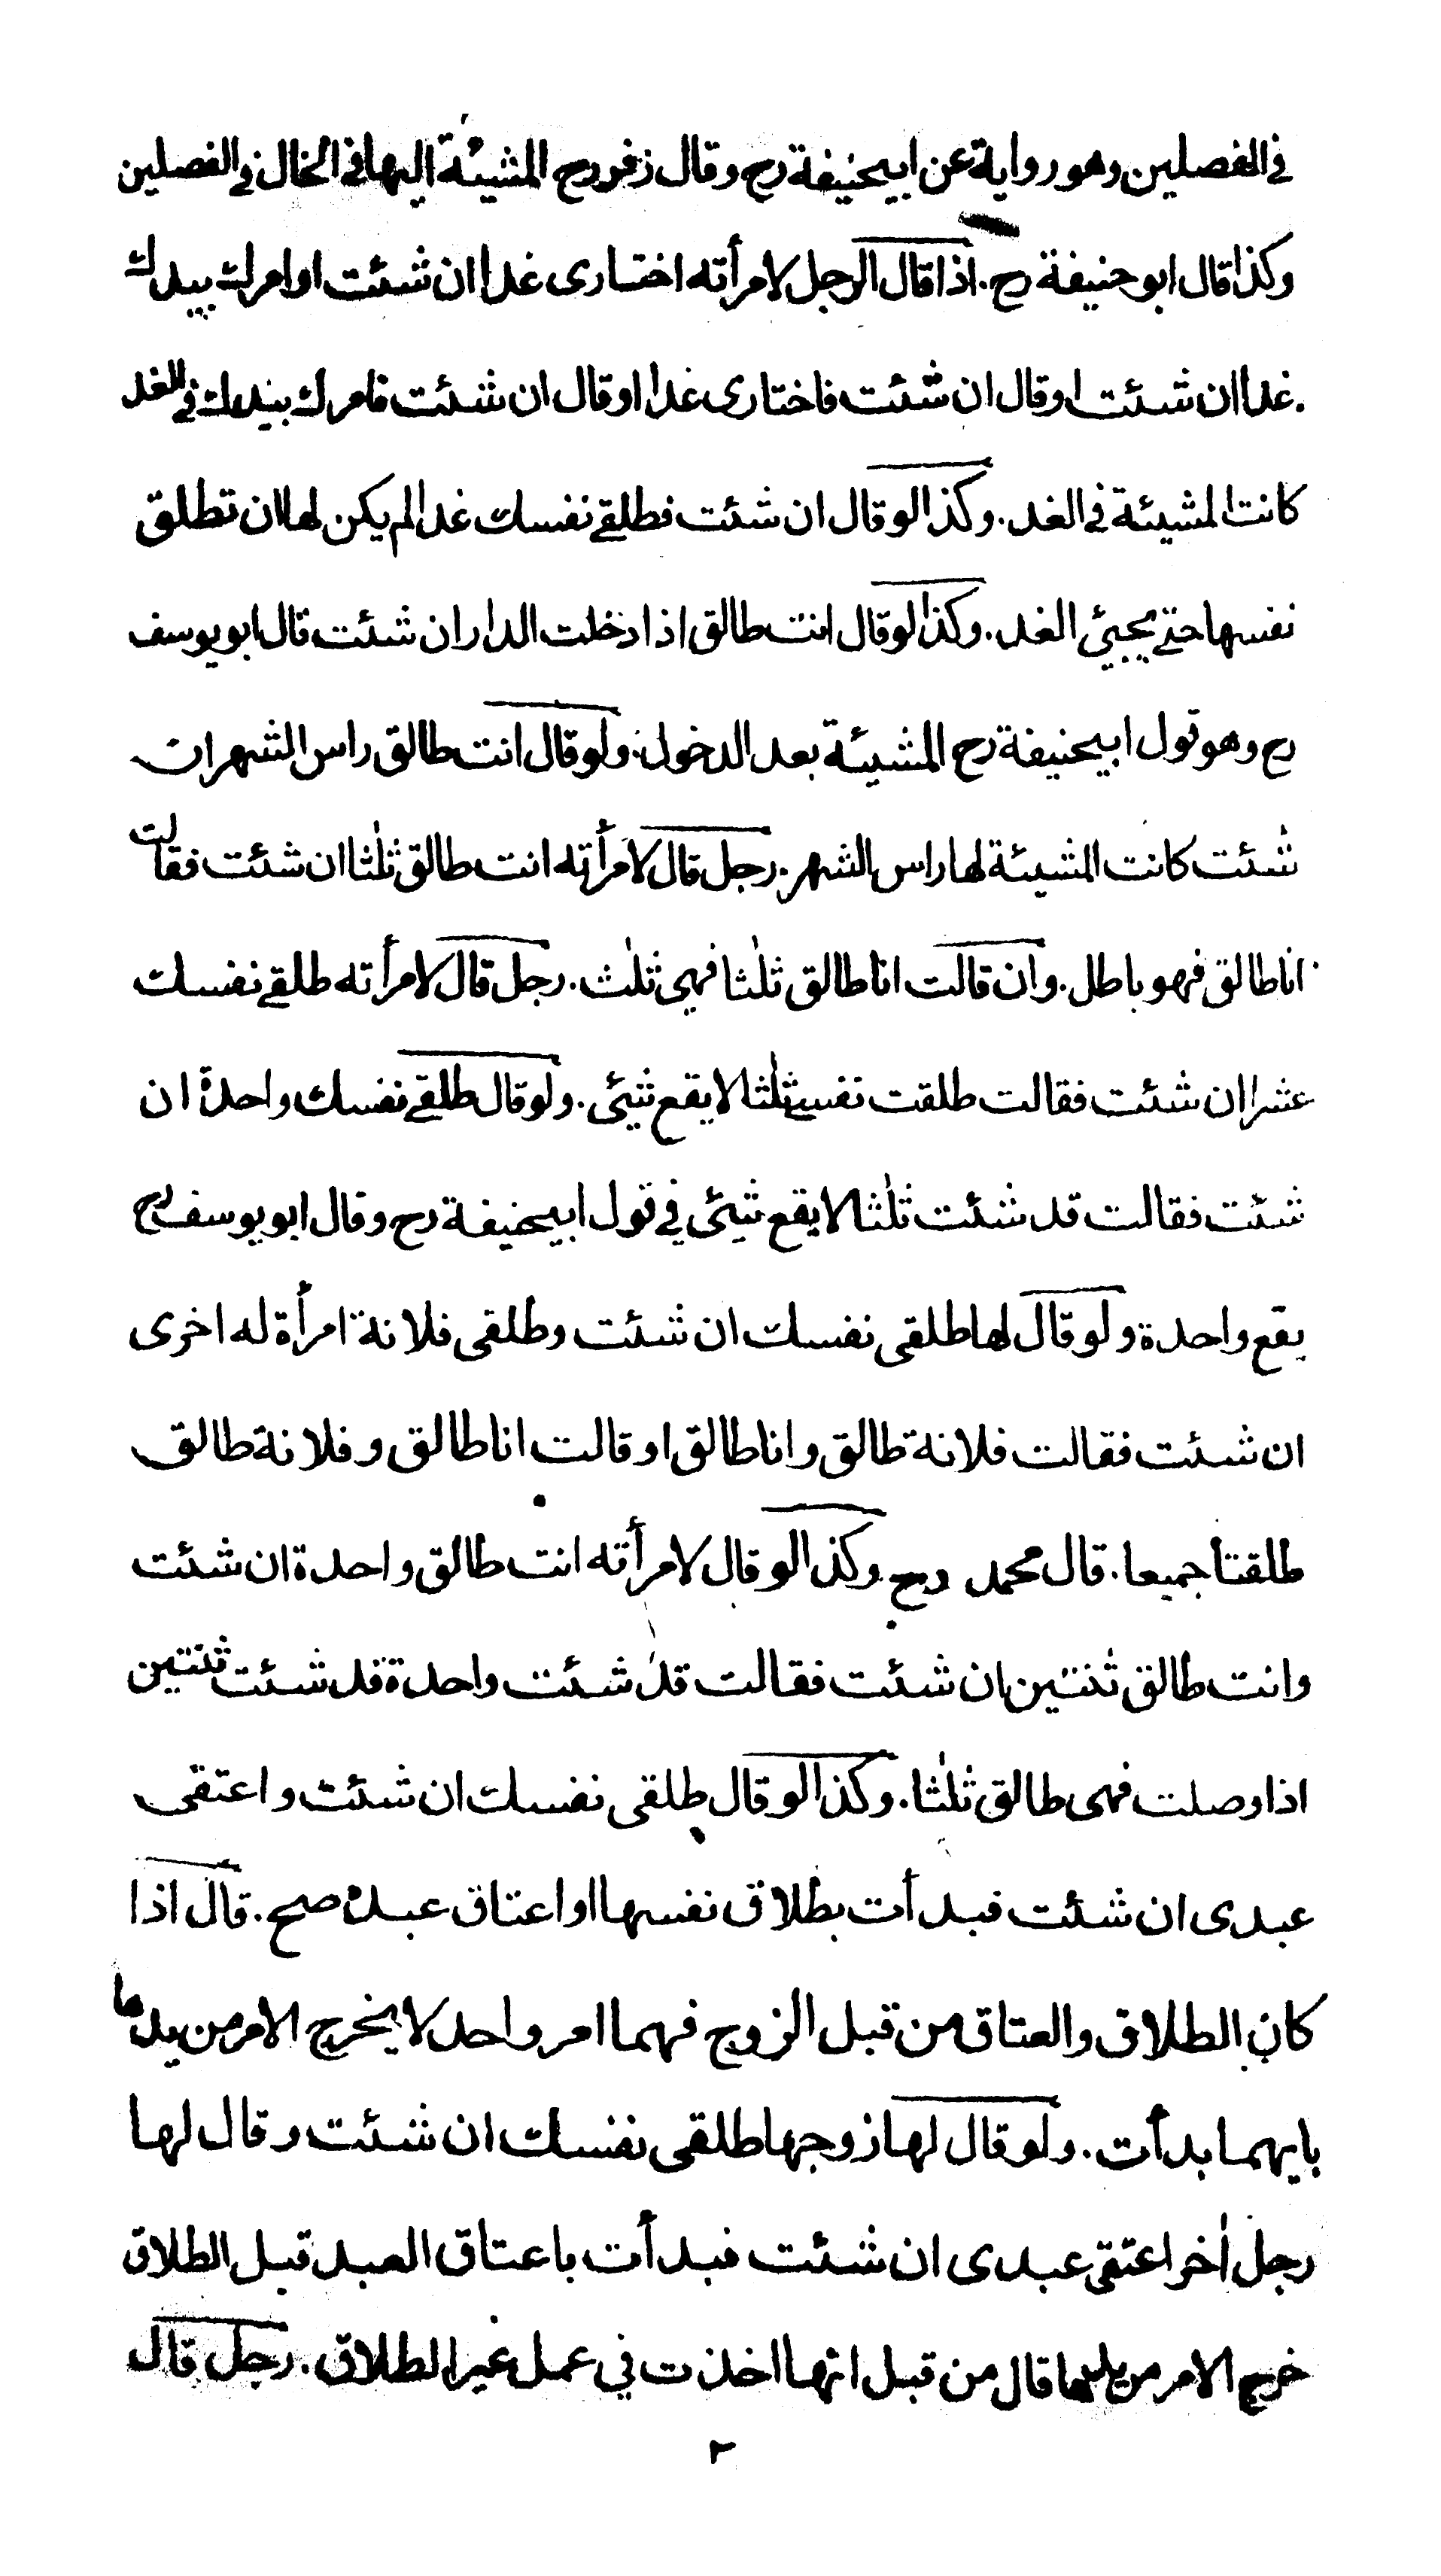 في الفصلين وهو رواية عن ابيحنيفة رح وقال زفر رح المشيئة اليها في الحال في الفصلين
وكذا قال ابو حنيفة رح. اذا قال الرجل لامرأته اختارى غدا ان شئت او امرك بيدك
غدا ان شئت او قال ان شئت فاختارى غدا او قال ان شئت فامرك بيدك في الغد
كانت المشيئة في الغد. وكذا لو قال ان شئت فطلقے نفسك غدا لم يكن لها ان تطلق
نفسها حتے يجيئ الغد. وكذا لو قال انت طالق اذا دخلت الدار ان شئت قال ابو يوسف
رح وهو قول ابيحنيفة رح المشيئة بعد الدخول. ولو قال انت طالق راس الشهر ان
شئت كانت المشيئة لها راس الشهر. رجل قال لامرأته انت طالق ثلٰثا ان شئت فقالت
انا طالق فهو باطل. وان قالت انا طالق ثلٰثا فهي ثلٰث. رجل قال لامرأته طلقے نفسك
عشرا ان شئت فقالت طلقت نفسے ثلٰثا لا يقع شيئ. ولو قال طلقے نفسك واحدة ان
شئت فقالت قد شئت ثلٰثا لا يقع شيئ في قول ابيحنيفة رح وقال ابو يوسف رح
يقع واحدة ولو قال لها طلقى نفسك ان شئت وطلقى فلانة امرأة له اخرى
ان شئت فقالت فلانة طالق وانا طالق او قالت انا طالق وفلانة طالق
طلقتا جميعا. قال محمد رح وكذا لو قال لامرأته انت طالق واحدة ان شئت
وانت طالق ثنتين ان شئت فقالت قد شئت واحدة قد شئت ثنتين
اذا وصلت فهى طالق ثلٰثا. وكذا لو قال طلقى نفسك ان شئت واعتقى
عبدى ان شئت فبدأت بطلاق نفسها او اعتاق عبده صح. قال اذا
كان الطلاق والعتاق من قبل الزوج فهما امر واحد لا يخرج الامر من يدها
بايهما بدأت. ولو قال لها زوجها طلقى نفسك ان شئت وقال لها
رجل اٰخر اعتقى عبدى ان شئت فبدأت باعتاق العبد قبل الطلاق
خرج الامر من يدها قال من قبل انها اخذت في عمل غير الطلاق. رجل قال
٢